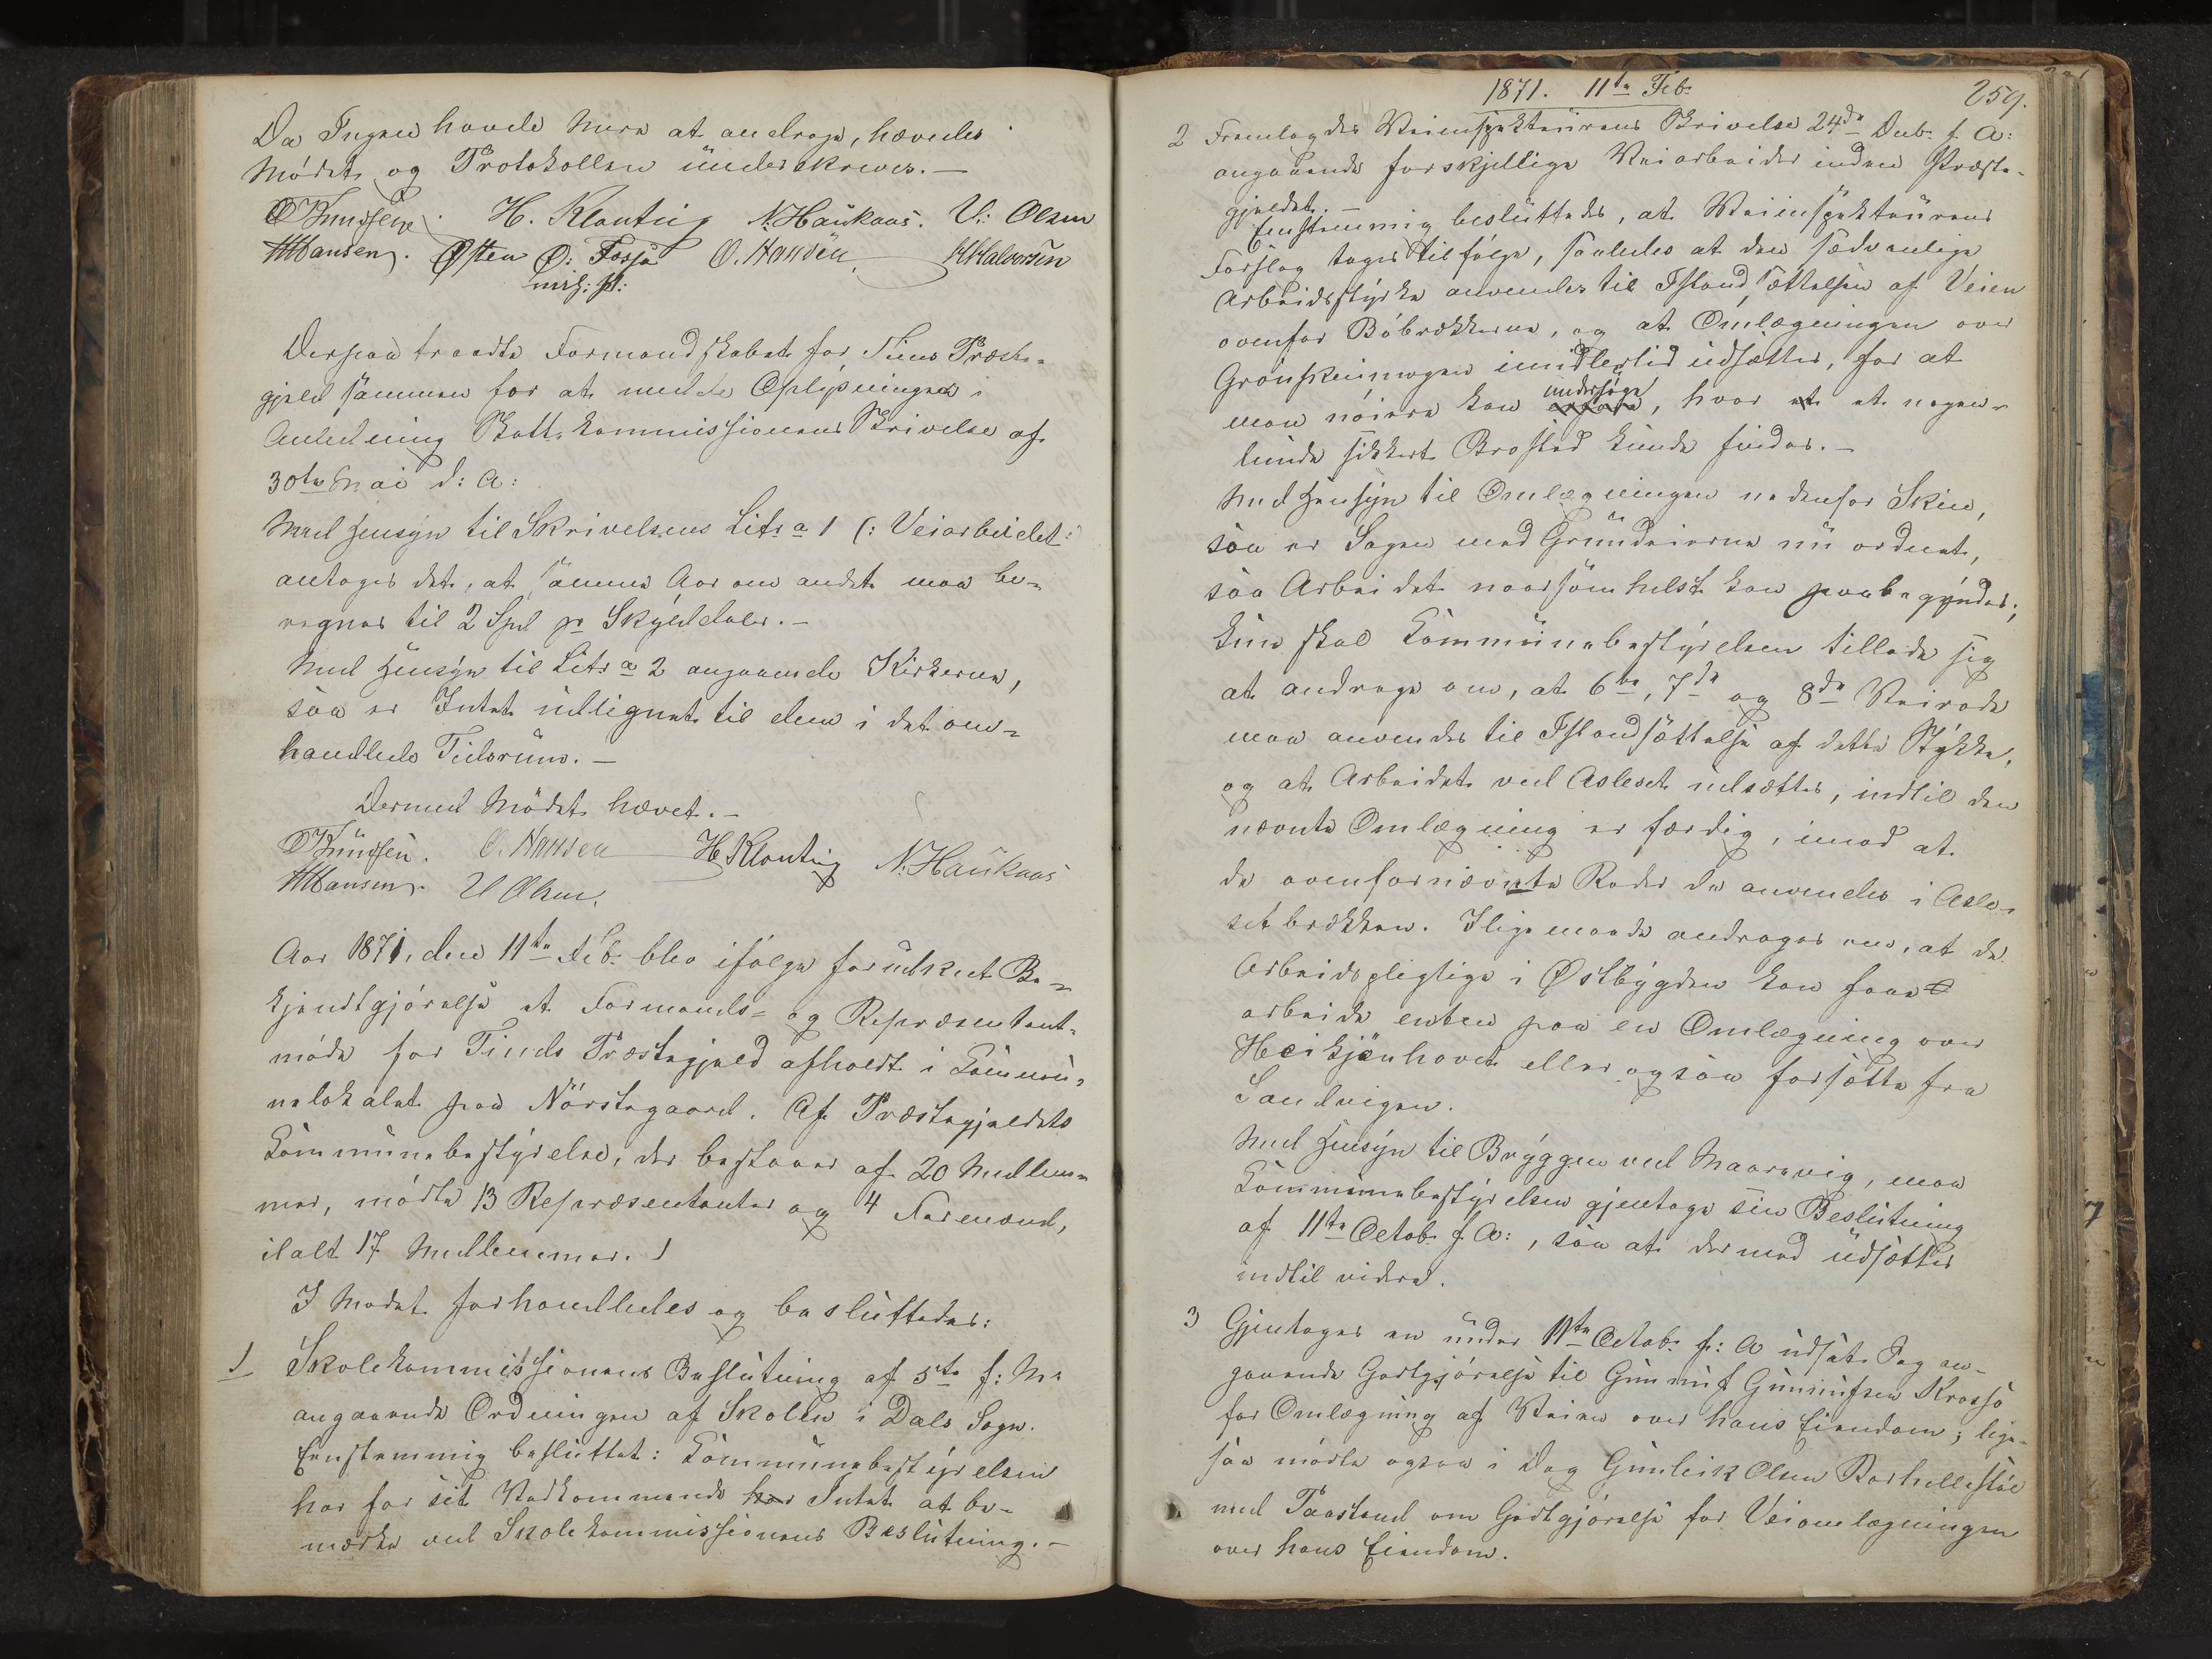 Da Ingen havde mere at andrage, hævedes
Mödet og Protokollen underskreves. —
O Knudsen. H. Klonteig N. Haukaas. U: Olsen
HHansen. Østen Ø: Fosso O. Hansen HHalvorsen
m. i. h: p:
Derpaa traadte Formandskabet for Tinns Præste-
gjeld sammen for at meddele Oplysninger i
Anledning Skattekommissionens Skrivelse af
30te Mai d: A:
Med Hensyn til Skrivelsens Litr a 1 (: Veiarbeidet :)
antages det, at samme Aar om andet maa be-
regnes til 2 Spd pr Skylddaler. —
Med Hensyn til Litr a 2 angaaende Kirkerne,
saa er Intet udlignet til dem i det om-
handlede Tidsrum. —
Dermed Mödet hævet. —
O Knudsen. O. Hansen H Klonteig N. Haukaas
HHansen. U Olsen.
Aar 1871, den 11te Feb. blev ifölge forudskeet Be-
kjendtgjörelse et Formands- og Repræsentant-
möde for Tinds Præstegjeld afholdt i Kommu-
nelokalet paa Nörstegaard. Af Præstegjeldets
Kommunebestyrelse, der bestaaer af 20 Medlem-
mer, mödte 13 Repræsentanter og 4 Formænd,
ialt 17 Medlemmer.
I Mödet forhandledes og besluttedes:
1 Skolekommissionens Beslutning af 5te f: M:
angaaende Ordningen af Skolen i Dals Sogn.
Eenstemmig besluttet: Kommunebestyrelsen
har for sit Vedkommende har Intet at be-
mærke ved Skolekommissionens Beslutning. —
1871. 11te Feb. 259.
2 Fremlagdes Veiinspekteurens Skrivelse 24de Decb. f. A:
angaaende forskjellige Veiarbeider inden Præste-
gjeldet. —
Eenstemmig besluttedes, at Veiinspekteurens
Forslag tages tilfölge, saaledes at den sædvanlige
Arbeidsstyrke anvendes til Istandsættelsen af Veien
ovenfor Böbrækkerne, og at Omlægningen over
Grönskeimogen imidlertid udsættes, for at
man nöiere kan erfare undersöge, hvor et at nogen-
lunde sikkert Brosted kunde findes. —
Med Hensyn til Omlægningen nedenfor Skien,
saa er Sagen med Grundeierne nu ordnet,
saa Arbeidet naarsomhelst kan paabegyndes;
kun skal Kommunebestyrelsen tillade sig
at andrage om, at 6te, 7de og 8de Veirode
maa anvendes til Istandsættelse af dette Stykke,
og at Arbeidet ved Aslesæt udsættes, indtil den
nævnte Omlægning er færdig, imod at
de ovenfornævnte Roder da anvendes i Asle-
setbrækken. Iligemaade andrages om, at de
Arbeidspligtige i Østbygden kan faae
arbeide enten paa en Omlægning over
Heikjenhovet eller ogsaa forsætte fra
Sandvigen.
Med Hensyn til Bryggen ved Maarevig, maa
Kommunebestyrelsen gjentage sin Beslutning
af 11te Octob. f. A:, saa at dermed udsættes
indtil videre.
3 Gjentages en under 11te Octob. f: A udsat Sag an-
gaaende Godtgjörelse til Gunnuf Gunnufsen Krosso
for Omlægning af Veien over hans Eiendom; lige-
saa mödte ogsaa i Dag Gunleik Olsen Rorhellestöe
med Paastand om Godtgjörelse for Veiomlægningen
over hans Eiendom.